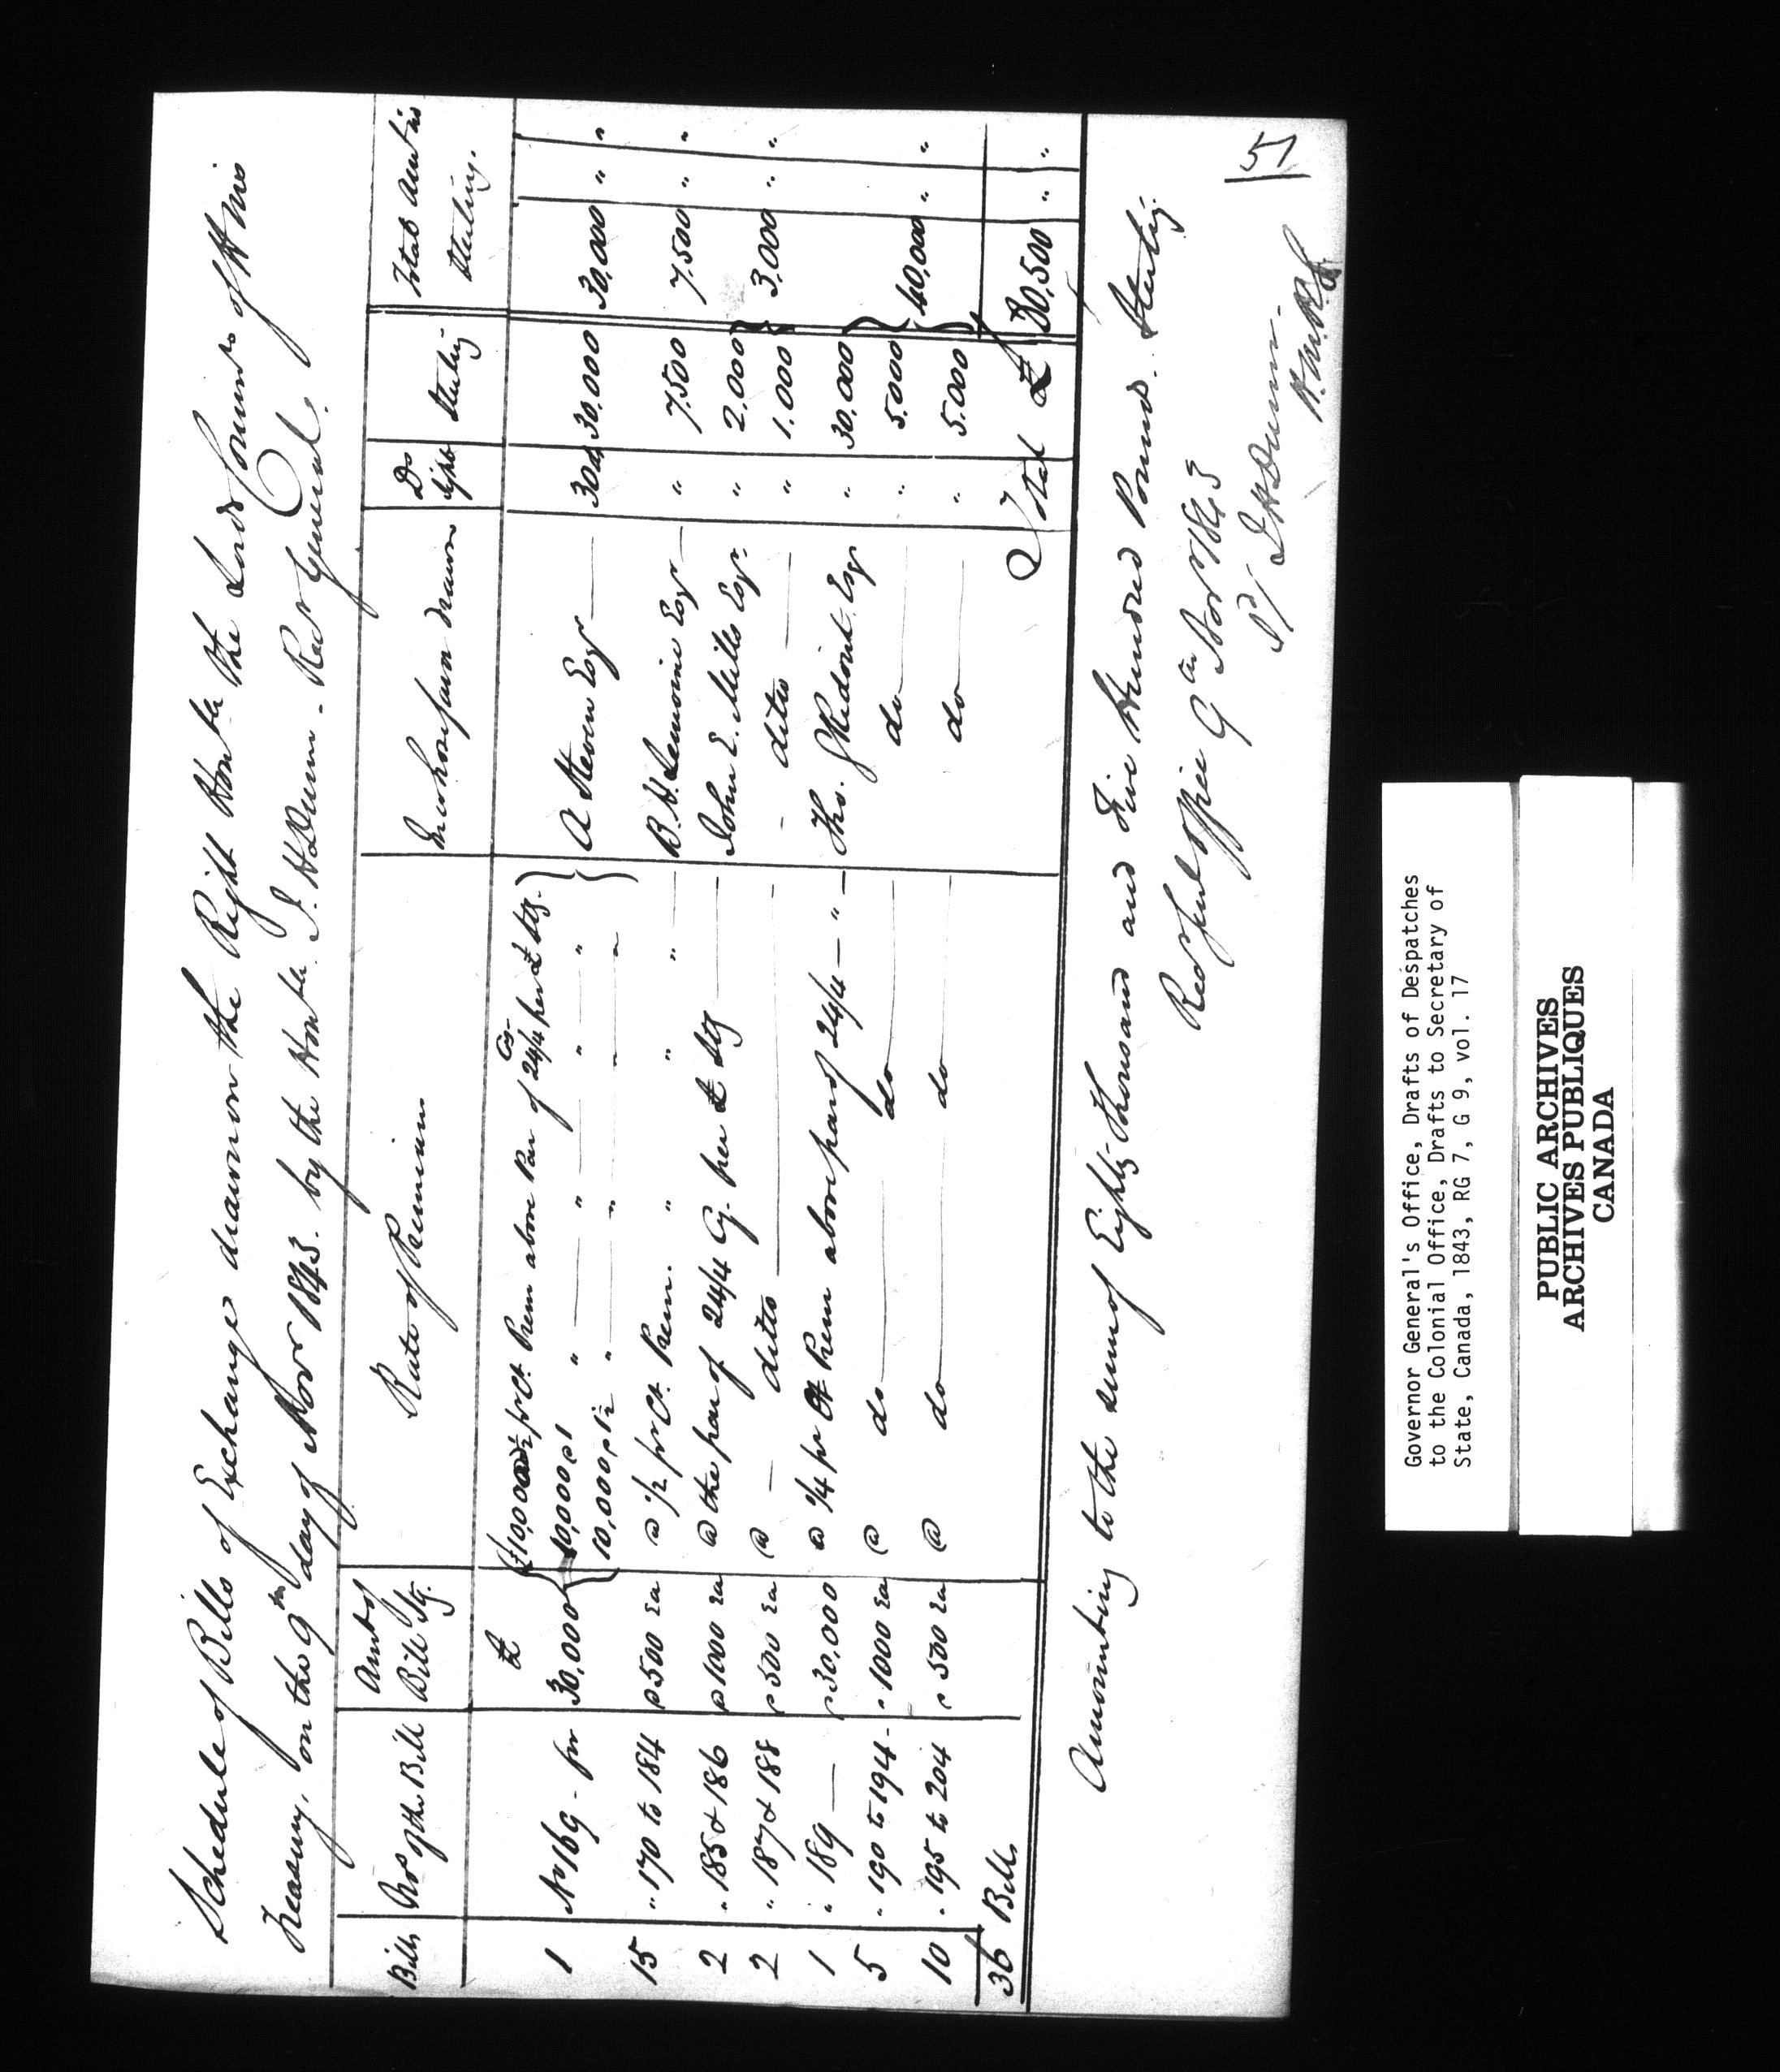 Schedule of Bills of Exchange drawn on the Right Honble the Lords Commrs of H Ms
Treasury, on the 9th day of Novr 1843. by the Honble J. H Dunn. Recr General.
Bills | Nos of the Bill | Amt of Bill Stg. | Rate of Premium | In whose favor drawn | Do sight | Sterling | Total Amt in Sterling.
1 | No 169 - for | £ 30,000 | £10,000 @ ½ pr Ct. Prem above Par of 24/4 Cy- per £ Stg. | A Steven Esqr | 30 ds | 30,000 | 30,000 " "
10,000 @ 1 " " " "
10,000 @ 1½ " " " "
15 | " 170 to 184 | @ 500 Ea | @ ½ pr Ct. Prem. " " " | B. H. Lemoine Esqr | " | 7,500 | 7,500 " "
2 | " 185 & 186 | @ 1000 Ea | @ the par of 24/4 Cy. per £ Stg | John E. Mills Esqr. | " | 2,000
2 | " 187 & 188 | " 500 Ea | @ — ditto | - ditto | " | 1,000 | 3,000 " "
1 | " 189 — | " 30,000 | @ ¼ pr Ct Prem above par of 24/4 — " | Thos. G Ridout Esqr | " | 30,000
5 | " 190 to 194 - | " 1000 Ea | @ do do | do | " | 5,000 | 40,000 " "
10 | " 195 to 204 | " 500 Ea | @ do do | do | " | 5,000
36 Bills | Total £ | 80,500 " "
Amounting to the sum of Eighty Thousand and Five Hundred Pounds. Sterling.
Recr Genl Office 9th Novr 1843
Sd/ J H Dunn.
H. M. R. G.
51
Governor General's Office, Drafts of Despatches
to the Colonial Office, Drafts to Secretary of
State, Canada, 1843, RG 7, G 9, vol. 17
PUBLIC ARCHIVES
ARCHIVES PUBLIQUES
CANADA